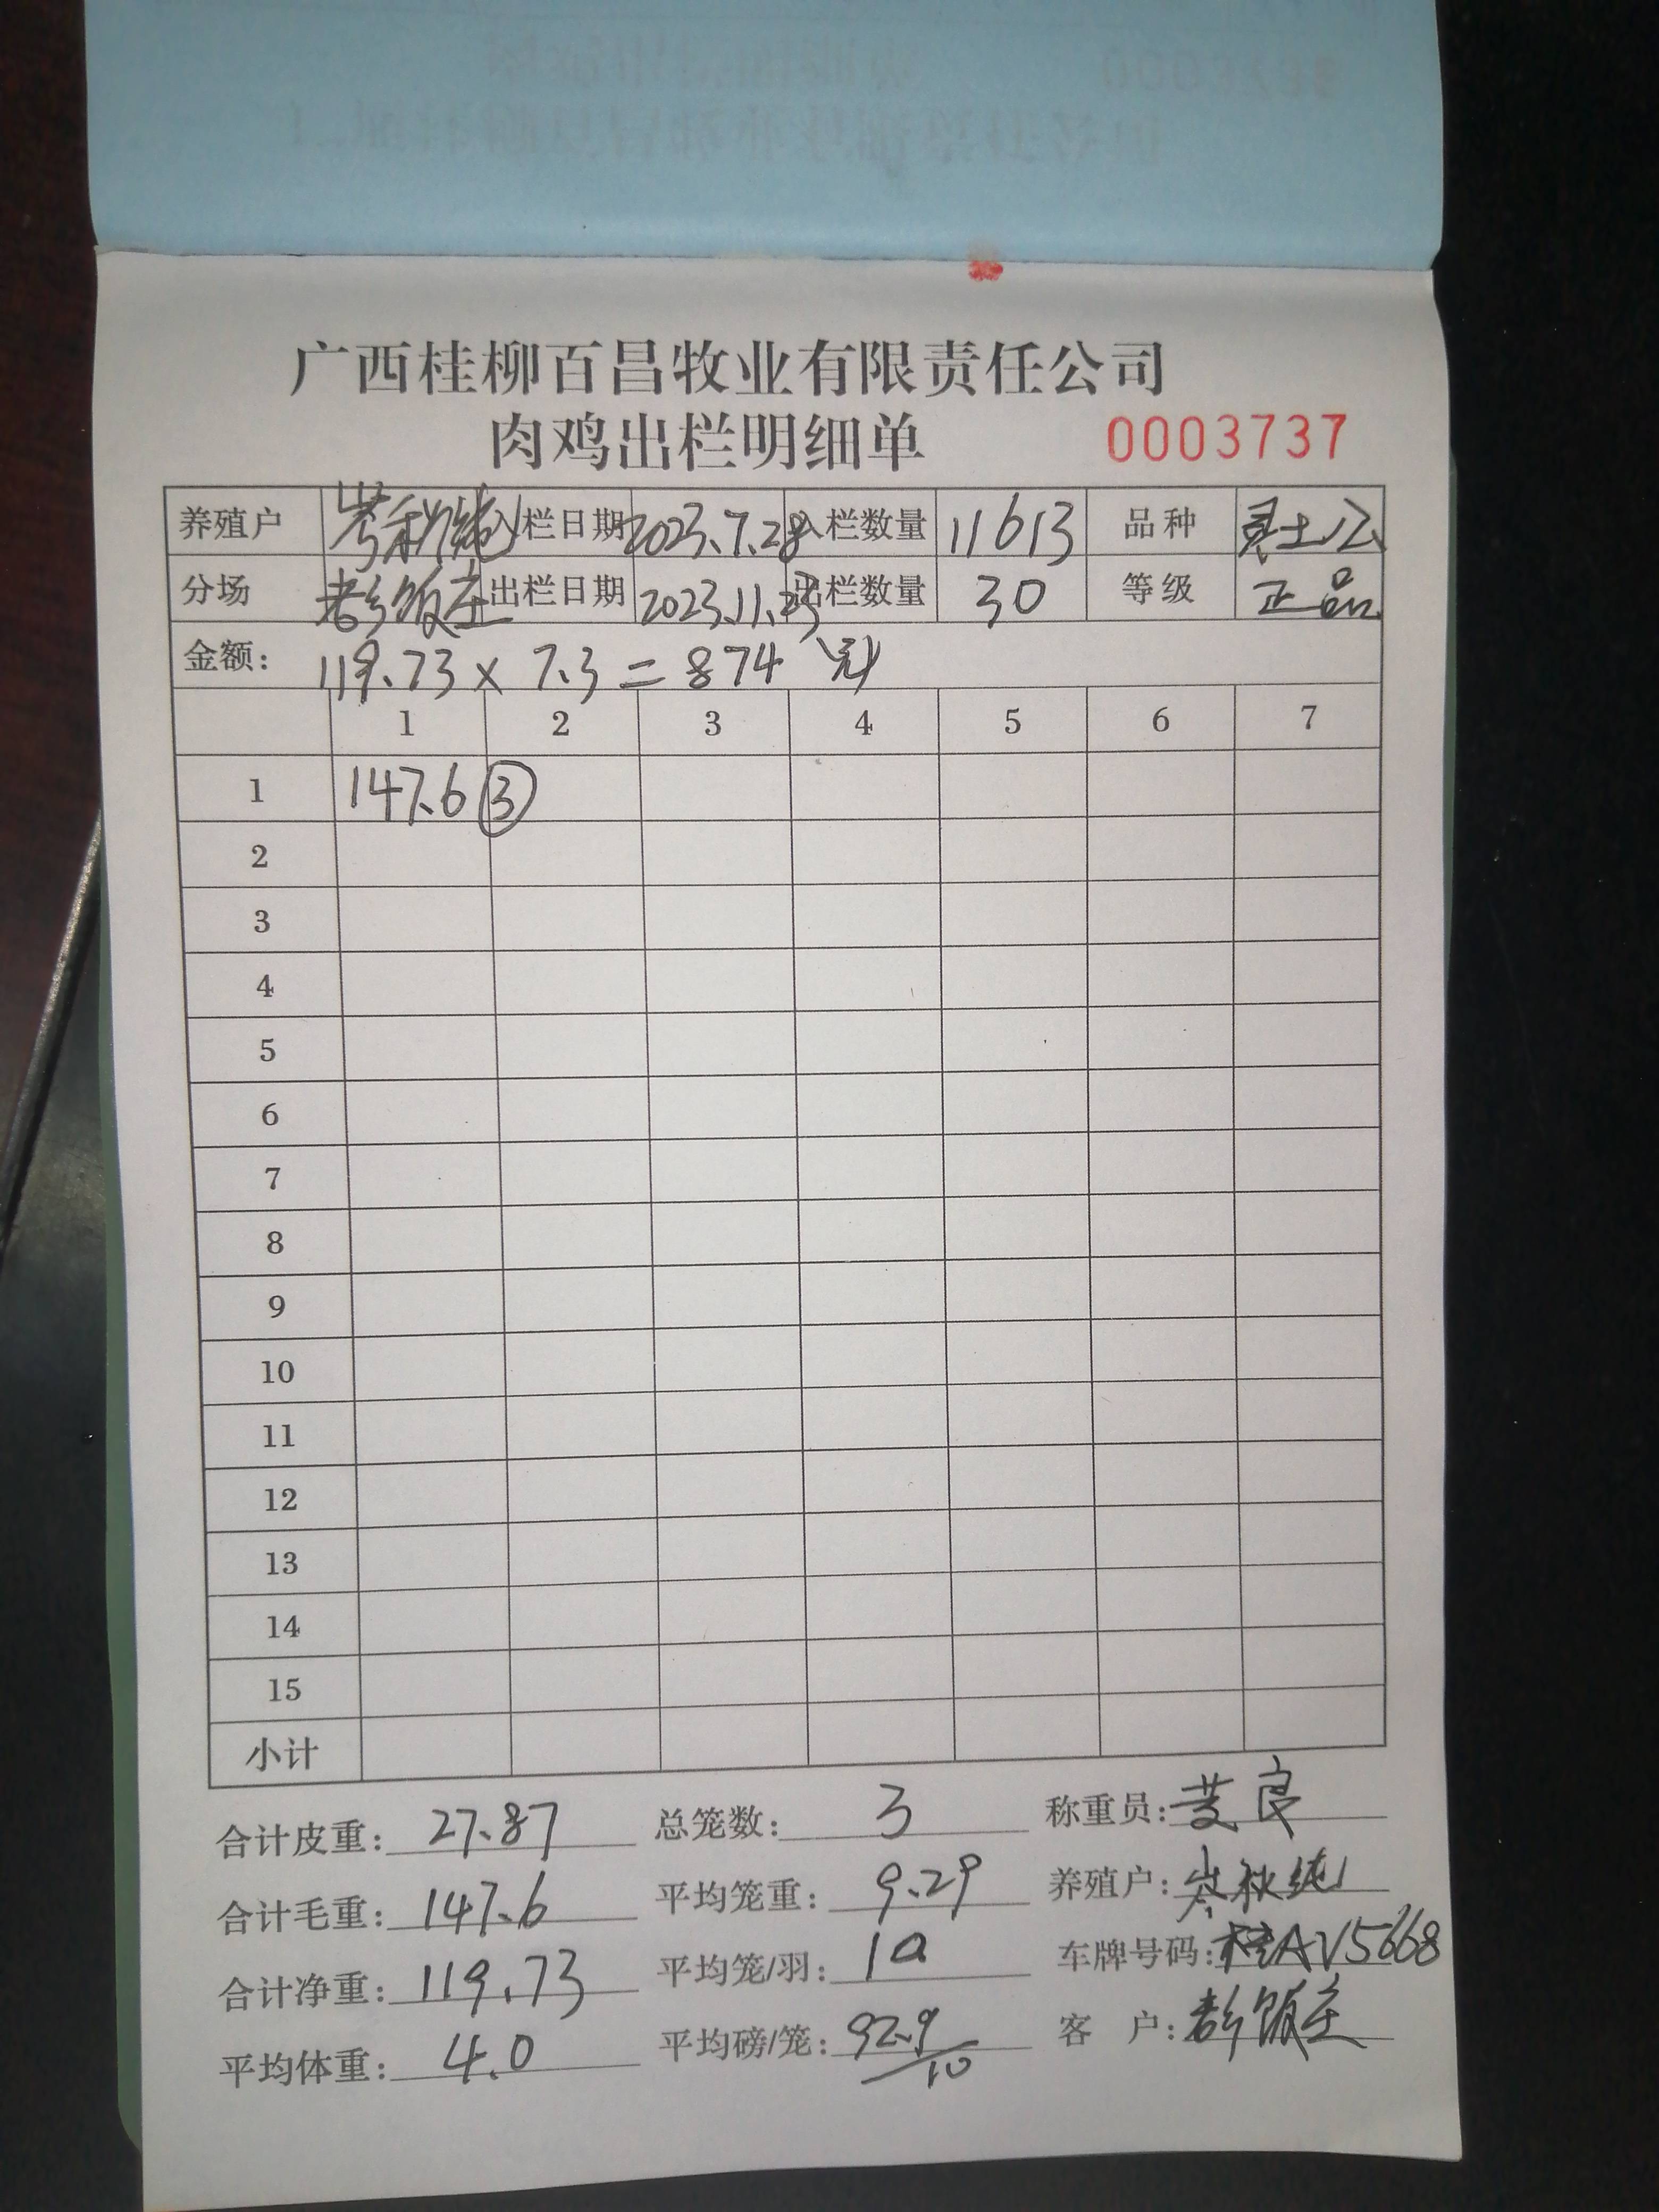 广西桂柳百昌牧业有限责任公司
肉鸡出栏明细单 0003737
养殖户 岑秋纯 入栏日期 2023.7.28 入栏数量 11613 品种 灵土公
分场 老乡饭庄 出栏日期 2023.11.23 出栏数量 30 等级 正品
金额: 119.73 × 7.3 = 874 元
1 2 3 4 5 6 7
1 147.6 ③
2
3
4
5
6
7
8
9
10
11
12
13
14
15
小计
合计皮重: 27.87 总笼数: 3 称重员: 良
合计毛重: 147.6 平均笼重: 9.29 养殖户: 岑秋纯
合计净重: 119.73 平均笼/羽: 10 车牌号码: 桂AV5668
平均体重: 4.0 平均磅/笼: 92.9/10 客 户: 老乡饭庄